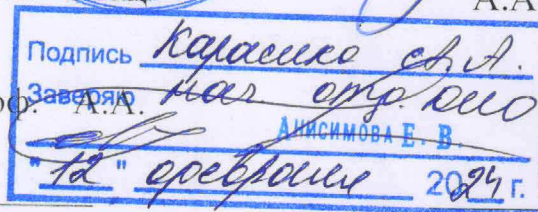 А.А
Подпись Карасика А.А.
Заверяю нач. отд. ОЮО
А.А.
АНИСИМОВА Е. В.
"12" февраля 2024 г.